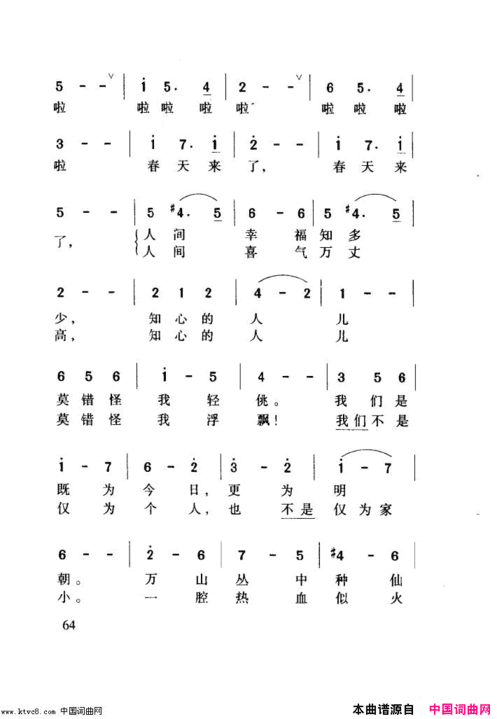 5 - - ∨ | i̇ 5. 4 | 2 - - ∨ | 6 5. 4 |
啦 啦 啦 啦 啦 啦 啦 啦
3 - - | i̇ 7. i̇ | 2̇ - - | i̇ 7. i̇ |
啦 春 天 来 了, 春 天 来
5 - - | 5 #4. 5 | 6 - 6 | 5 #4. 5 |
了, 人 间 幸 福 知 多
人 间 喜 气 万 丈
2 - - | 2 1 2 | 4 - 2 | 1 - - |
少, 知 心 的 人 儿
高, 知 心 的 人 儿
6 5 6 | i̇ - 5 | 4 - - | 3 5 6 |
莫 错 怪 我 轻 佻。 我 们 是
莫 错 怪 我 浮 飘! 我们 不 是
i̇ - 7 | 6 - 2̇ | 3̇ - 2̇ | i̇ - 7 |
既 为 今 日, 更 为 明
仅 为 个 人, 也 不是 仅 为 家
6 - - | 2̇ - 6 | 7 - 5 | #4 - 6 |
朝。 万 山 丛 中 种 仙
小。 一 腔 热 血 似 火
64
www.ktvc8.com 中国词曲网
本曲谱源自 中国词曲网